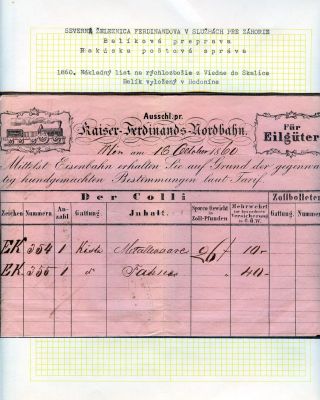 SEVERNÁ ŽELEZNICA FERDINANDOVA V SLUŽBÁCH PRE ZÁHORIE
Balíková preprava
Rakúska poštová správa
1860. Nákladný list na rýchlozbožie z Viedne do Skalice
Balík vyložený v Hodoníne
Ausschl. pr.
Kaiser-Ferdinands-Nordbahn.
Für
Eilgüter
Wien am 18 October 1860
Mittelst Eisenbahn erhalten Sie auf Grund der gegenwär
tig kundgemachten Bestimmungen laut Tarif
Der Colli
Zollbolleten
Zeichen Nummern. Anzahl Gattung. Inhalt. Sporco Gewicht in Zoll-Pfunden Mehrwerth zur besonderen Versicherung in Ö. W. Gattung. Nummer
EK 334 1 Kiste 96 10-
EK 335 1 d° 40-